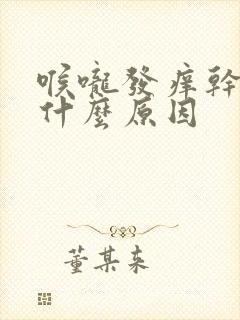 喉嚨發痒幹
什麼原因
董某来